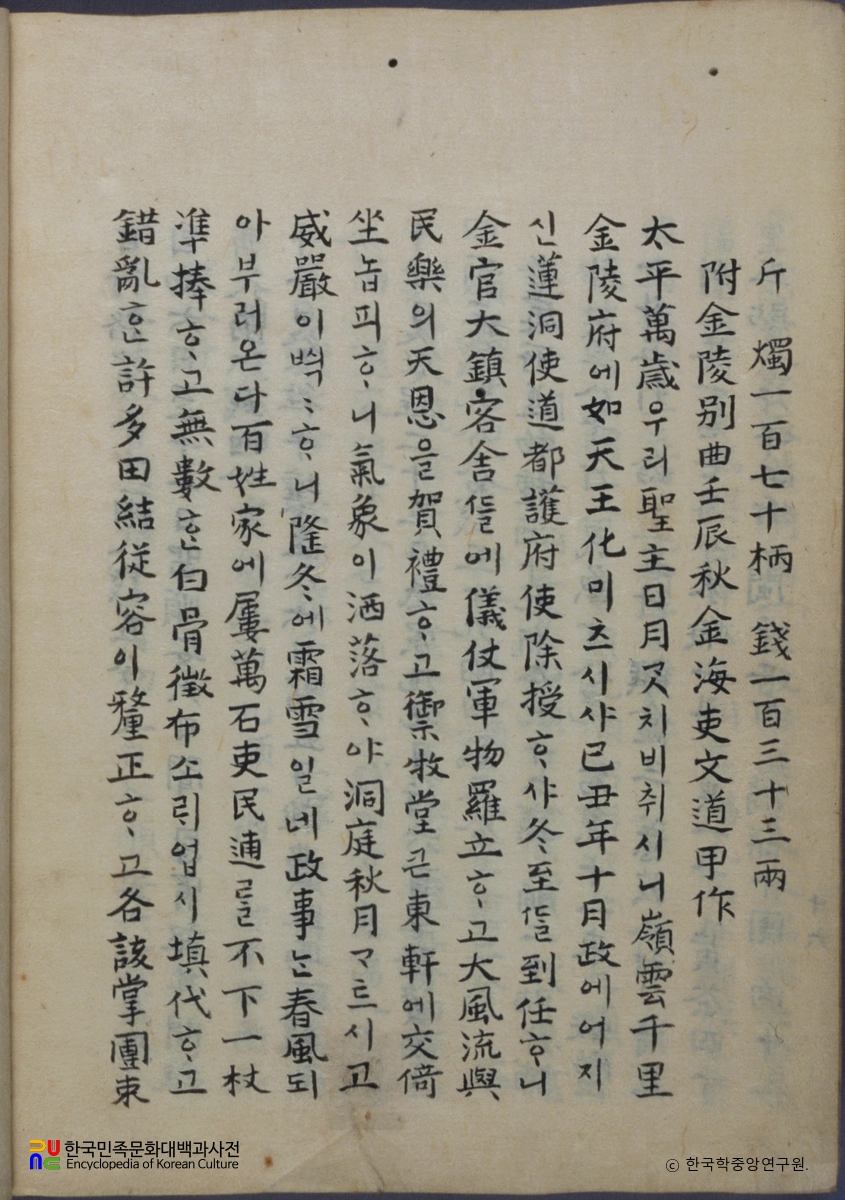 斤 燭一百七十柄 錢一百三十三兩
附金陵別曲壬辰秋金海吏文道甲作
太平萬歲우리聖主日月ᄀᆞ치비취시니嶺雲千里
金陵府에如天王化미츠시샤己丑年十月政에어지
신蓮洞使道都護府使除授ᄒᆞ샤冬至ᄃᆞᆯ到任ᄒᆞ니
金官大鎭客舍ᄠᅳᆯ에儀仗軍物羅立ᄒᆞ고大風流與
民樂의天恩을賀禮ᄒᆞ고禦牧堂큰東軒에交倚
坐놉피ᄒᆞ니氣象이洒落ᄒᆞ야洞庭秋月ᄀᆞᄐᆞ시고
威嚴이씩씩ᄒᆞ니隆冬에霜雪일네政事ᄂᆞᆫ春風되
아부러온다百姓家에屢萬石吏民逋ᄅᆞᆯ不下一杖
準捧ᄒᆞ고無數ᄒᆞᆫ白骨徵布소ᄅᆡ업시塡代ᄒᆞ고
錯亂ᄒᆞᆫ許多田結從容이釐正ᄒᆞ고各該掌團束
한국민족문화대백과사전
Encyclopedia of Korean Culture
ⓒ 한국학중앙연구원.